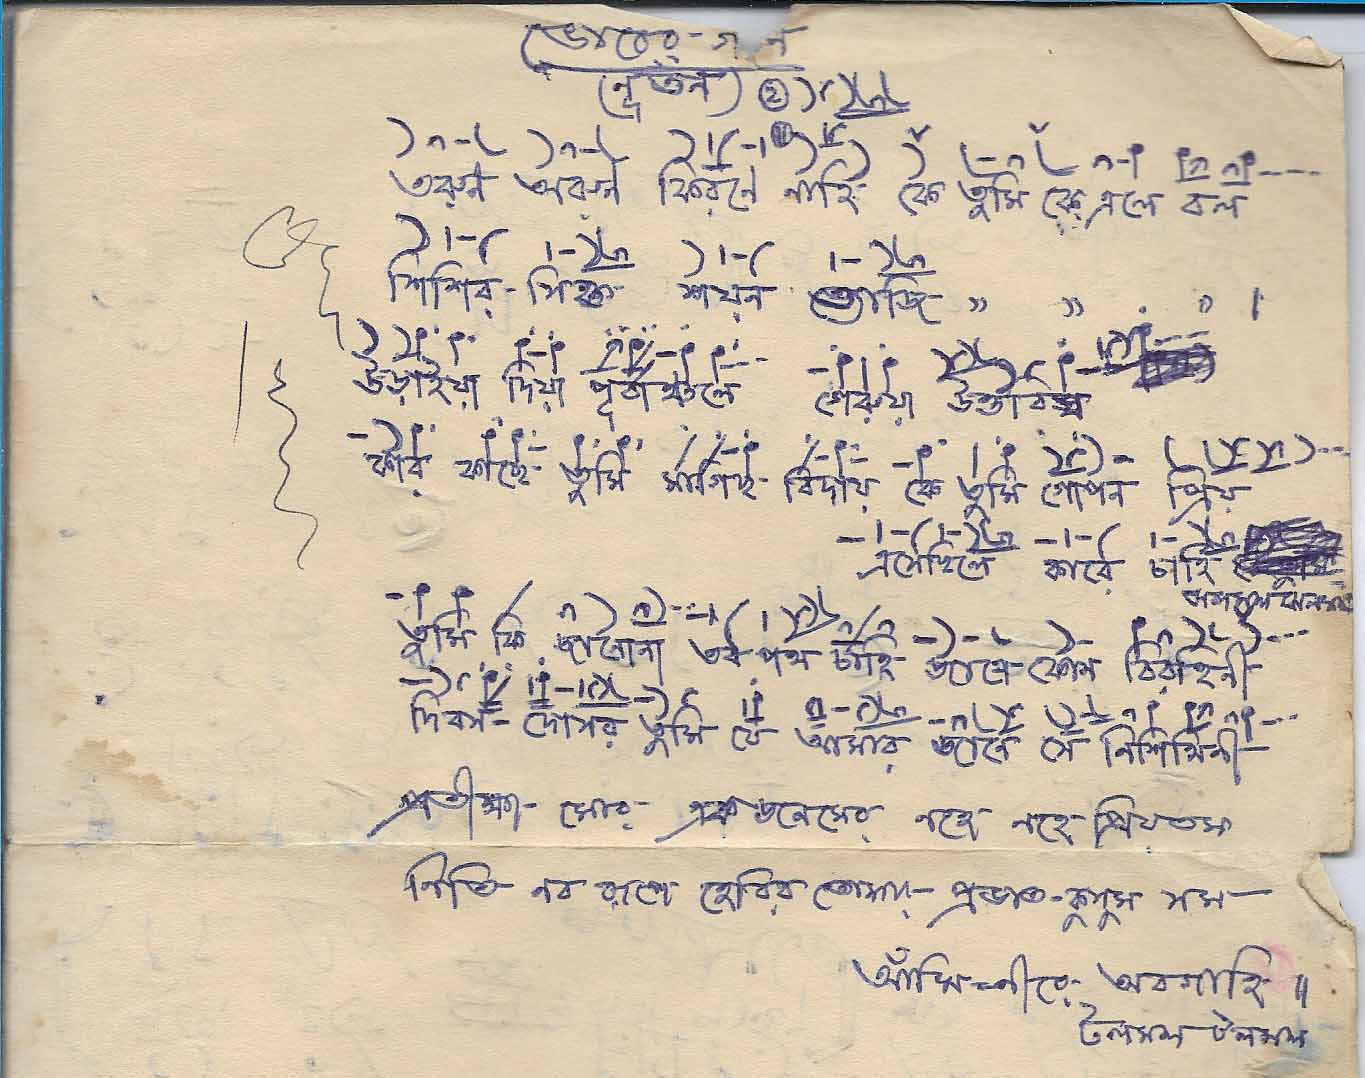 ভোরের গান
(নূতন) ②
তরুণ অরুণ কিরণে নাহি কে তুমি কে এলে বল
শিশির-সিক্ত শয়ন ত্যেজি " " " " ।
উড়াইয়া দিয়া পূর্বাঞ্চলে গেরুয়া উত্তরিয়
কার কাছে তুমি মাগিছ বিদায় কে তুমি গোপন প্রিয়
এসেছিলে কারে চাহি
তুমি কি জানোনা তব পথ চাহি জাগে কোন বিরহিনী
দিবস-দোসর তুমি যে আমার জাগে সে নিশিথিনী
প্রতীক্ষা মোর এক জনমের নহে নহে প্রিয়তম
নিতি নব রূপে হেরিব তোমায় প্রভাত-কুসুম সম
আঁখি-নীরে অবগাহি ॥
টলমল টলমল